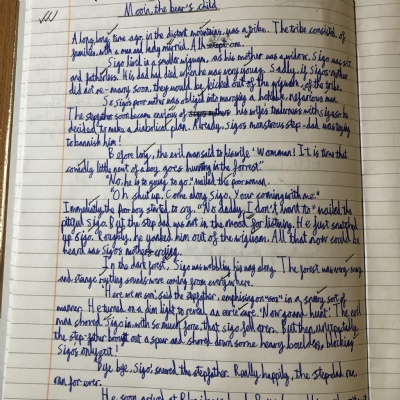 Moon, the bear's child
A long, long time ago, in the distant mountains, was a tribe. The tribe consisted of
families, with a man and lady married. All
Sigo lived in a smaller wigwam, as his mother was a widow. Sigo was six
and fatherless. His dad had died when he was very young. Sadly, if Sigo's mother
did not re-marry soon, they would be kicked out of the wigwam, of the tribe.
So Sigo's poor mother was obliged into marrying a horrible, nefarious man.
The stepfather soon became envious of his wife's tenderness with Sigo so he
decided to make a diabolical plan. Already, Sigo's monstrous step-dad was trying
to banish him!
Before long, the evil man said to his wife "Womman! It is time that
cowardly little runt of a boy, goes hunting in the forrest."
"No, he is to young to go." wailed the poor woman.
"Oh shut up. Come along Sigo. Your coming with me."
Immediately the poor boy started to cry. "No daddy, I don't want to" wailed the
pitiful Sigo. But the step dad was not in the mood for listening. He just snatched
up Sigo. Roughly, he yanked him out of the wigwam. All that now could be
heard was Sigo's mother crying.
In the dark forest, Sigo was wobbling his way along. The forest was very
and strange rustling sounds were coming from everywhere.
"Here we are son", said the stepfather, emphasising on "son" in a sort of
manner. He turned on a dim light to reveal an eerie cave. "Now go and hunt." The evil
man shoved Sigo in with so much force, that Sigo fell over. But then, unexpectedly,
the step-father bought out a spear and shoved down some heavy boulders, blocking
Sigo's only exit!
"Bye bye, Sigo", sneered the stepfather. Really happily, the step-dad ran,
ran for ever.
He soon arrived at